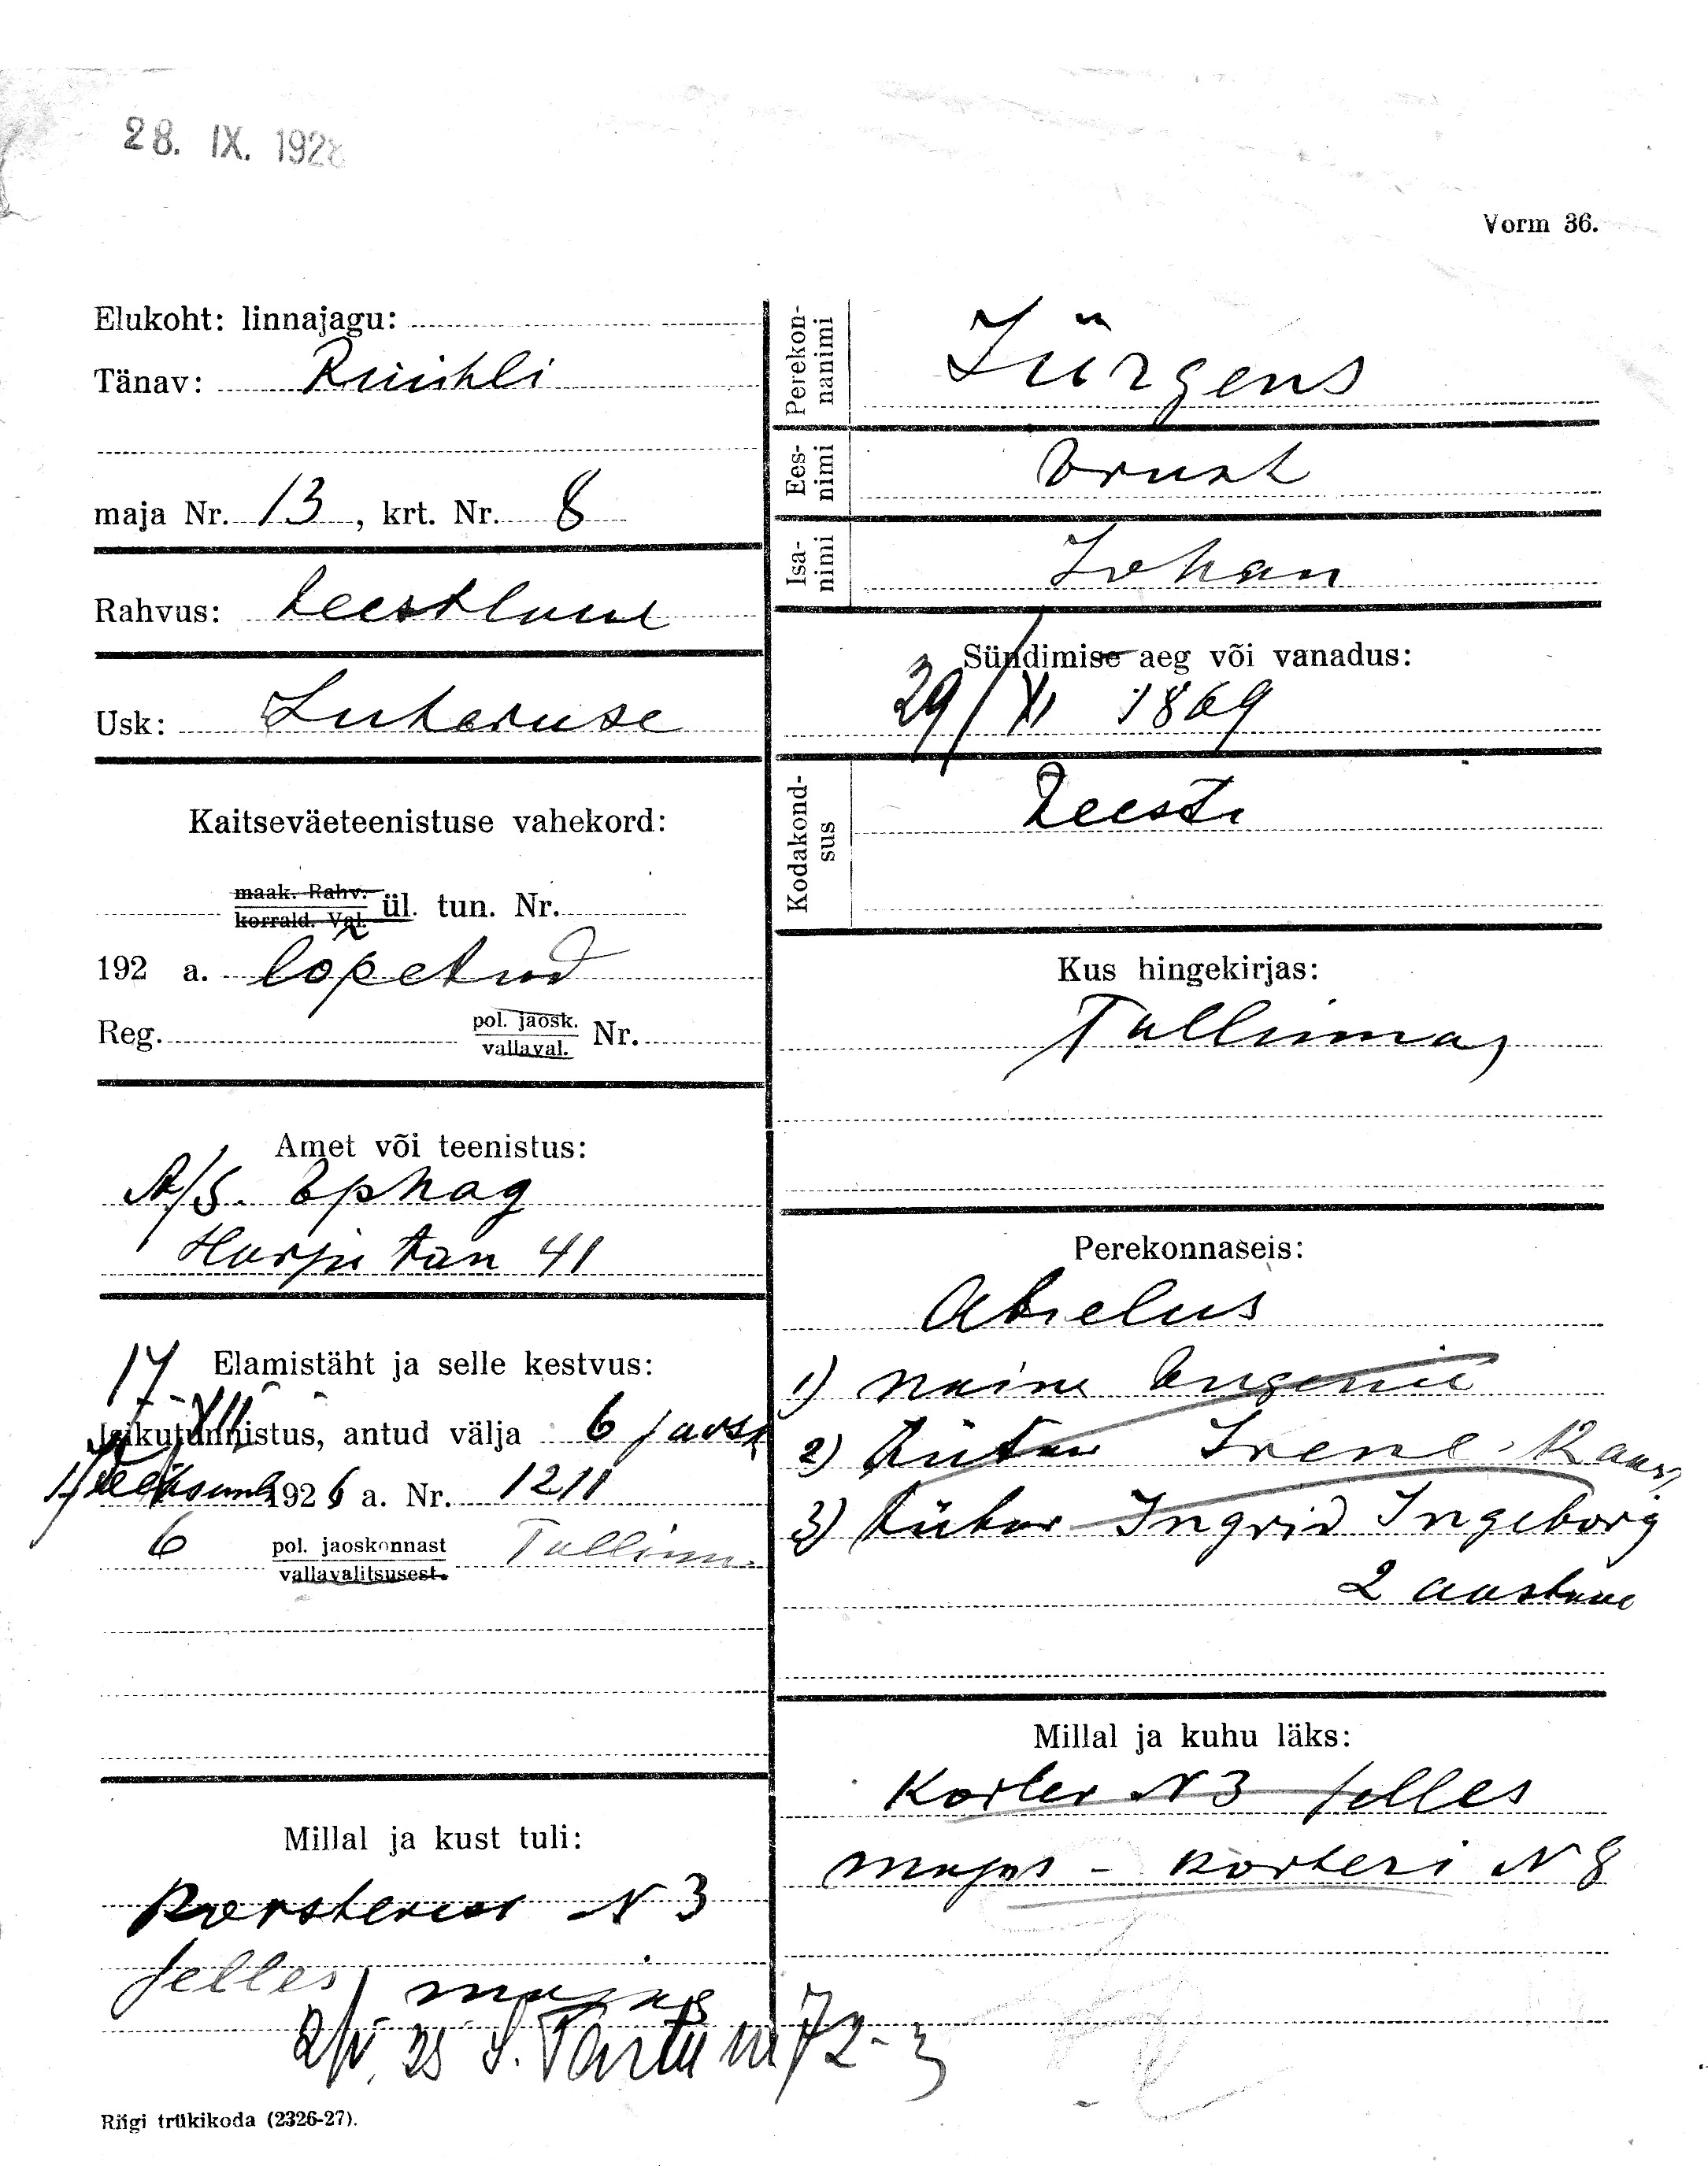 28. IX. 1928
Vorm 36.
Elukoht: linnajagu:
Tänav: Rüütli
maja Nr. 13, krt. Nr. 8
Rahvus: Eestlane
Usk: Luteruse
Kaitseväeteenistuse vahekord:
maak. Rahv.
korrald. Val. ül. tun. Nr.
192 a. lõpetud
Reg. pol. jaosk.
vallaval. Nr.
Amet või teenistus:
A/S. Ephag
Harju tän 41
17 Elamistäht ja selle kestvus:
XII
Isikutunnistus, antud välja 6 jaosk
1926 a. Nr. 1211
6 pol. jaoskonnast Tallinn.
vallavalitsusest.
Millal ja kust tuli:
N 3
selles majas
2/IV. 28 S. Tartu m 72-3
Riigi trükikoda (2326-27).
Perekon-
nanimi Jürgens
Ees-
nimi Ernst
Isa-
nimi Johan
Sündimise aeg või vanadus:
29/XI 1869
Kodakond-
sus Eesti
Kus hingekirjas:
Tallinnas
Perekonnaseis:
Abielus
1) naine Eugenie
2) tütar Irene
3) tütar Ingrid Ingeborg
2 aastane
Millal ja kuhu läks:
Korter N 3 selles
majas - korteri N 8